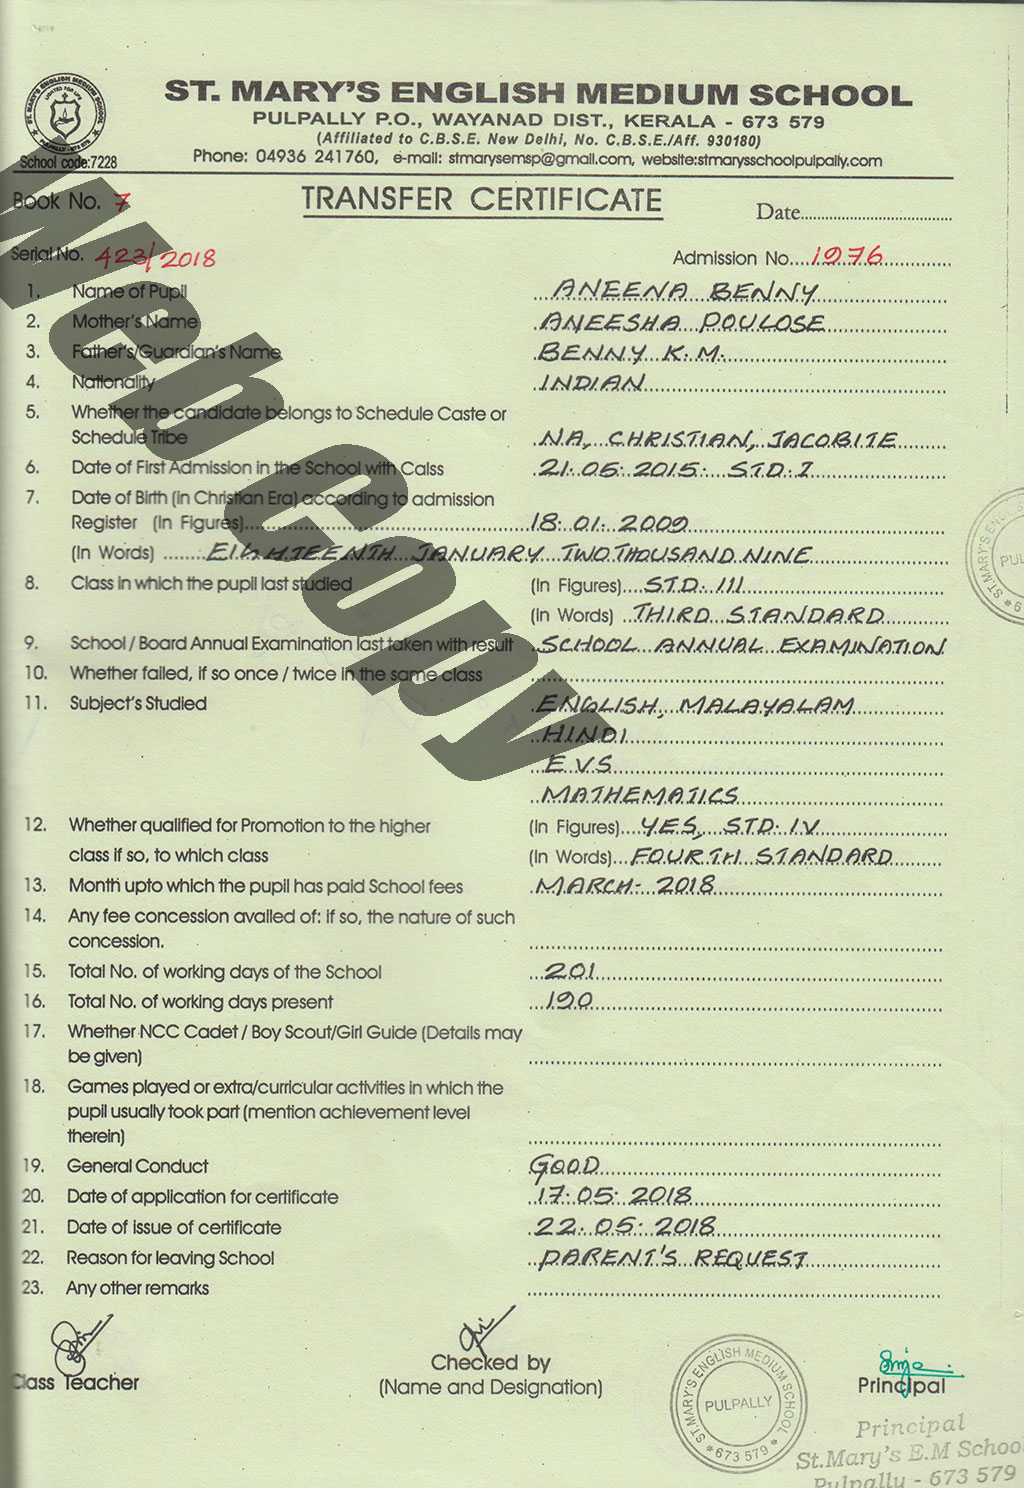 ST. MARY'S ENGLISH MEDIUM SCHOOL
PULPALLY P.O., WAYANAD DIST., KERALA - 673 579
(Affiliated to C.B.S.E. New Delhi, No. C.B.S.E./Aff. 930180)
School code:7228
Phone: 04936 241760, e-mail: stmarysemsp@gmail.com, website:stmarysschoolpulpally.com
Book No. 7
TRANSFER CERTIFICATE
Date
Serial No. 423/2018
Admission No. 1976
1. Name of Pupil ANEENA BENNY
2. Mother's Name ANEESHA POULOSE
3. Father's/Guardian's Name BENNY K.M.
4. Nationality INDIAN
5. Whether the candidate belongs to Schedule Caste or
Schedule Tribe NA, CHRISTIAN, JACOBITE
6. Date of First Admission in the School with Calss 21.05.2015. STD.I
7. Date of Birth (in Christian Era) according to admission
Register (In Figures) 18.01.2009
(In Words) EIGHTEENTH JANUARY TWO THOUSAND NINE
8. Class in which the pupil last studied (In Figures) STD.III
(In Words) THIRD STANDARD
9. School / Board Annual Examination last taken with result SCHOOL ANNUAL EXAMINATION
10. Whether failed, if so once / twice in the same class
11. Subject's Studied ENGLISH, MALAYALAM
HINDI
EVS
MATHEMATICS
12. Whether qualified for Promotion to the higher (In Figures) YES, STD.IV
class if so, to which class (In Words) FOURTH STANDARD
13. Month upto which the pupil has paid School fees MARCH- 2018
14. Any fee concession availed of: if so, the nature of such
concession.
15. Total No. of working days of the School 201
16. Total No. of working days present 190
17. Whether NCC Cadet / Boy Scout/Girl Guide (Details may
be given)
18. Games played or extra/curricular activities in which the
pupil usually took part (mention achievement level
therein)
19. General Conduct GOOD
20. Date of application for certificate 17.05.2018
21. Date of issue of certificate 22.05.2018
22. Reason for leaving School PARENT'S REQUEST
23. Any other remarks
Class Teacher
Checked by
(Name and Designation)
Principal
ST.MARY'S ENGLISH MEDIUM SCHOOL
PULPALLY
* 673 579 *
Principal
St.Mary's E.M School
Pulpally - 673 579
Web Copy